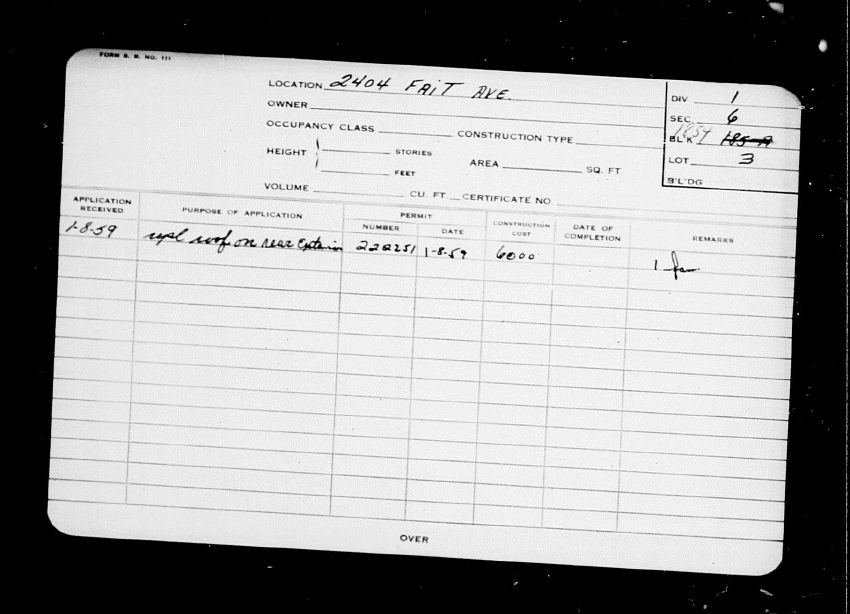 FORM B. B. NO. 111
LOCATION 2404 FAIT AVE.
OWNER
OCCUPANCY CLASS CONSTRUCTION TYPE
HEIGHT STORIES
FEET
AREA SQ. FT.
VOLUME CU. FT. CERTIFICATE NO.
DIV 1
SEC. 6
BL'K 1854 185-A
LOT 3
B'L'DG
APPLICATION RECEIVED
PURPOSE OF APPLICATION
PERMIT
NUMBER DATE
CONSTRUCTION COST
DATE OF COMPLETION
REMARKS
1-8-59 repl roof on rear Exterior 222251 1-8-59 6000 1 fam
OVER